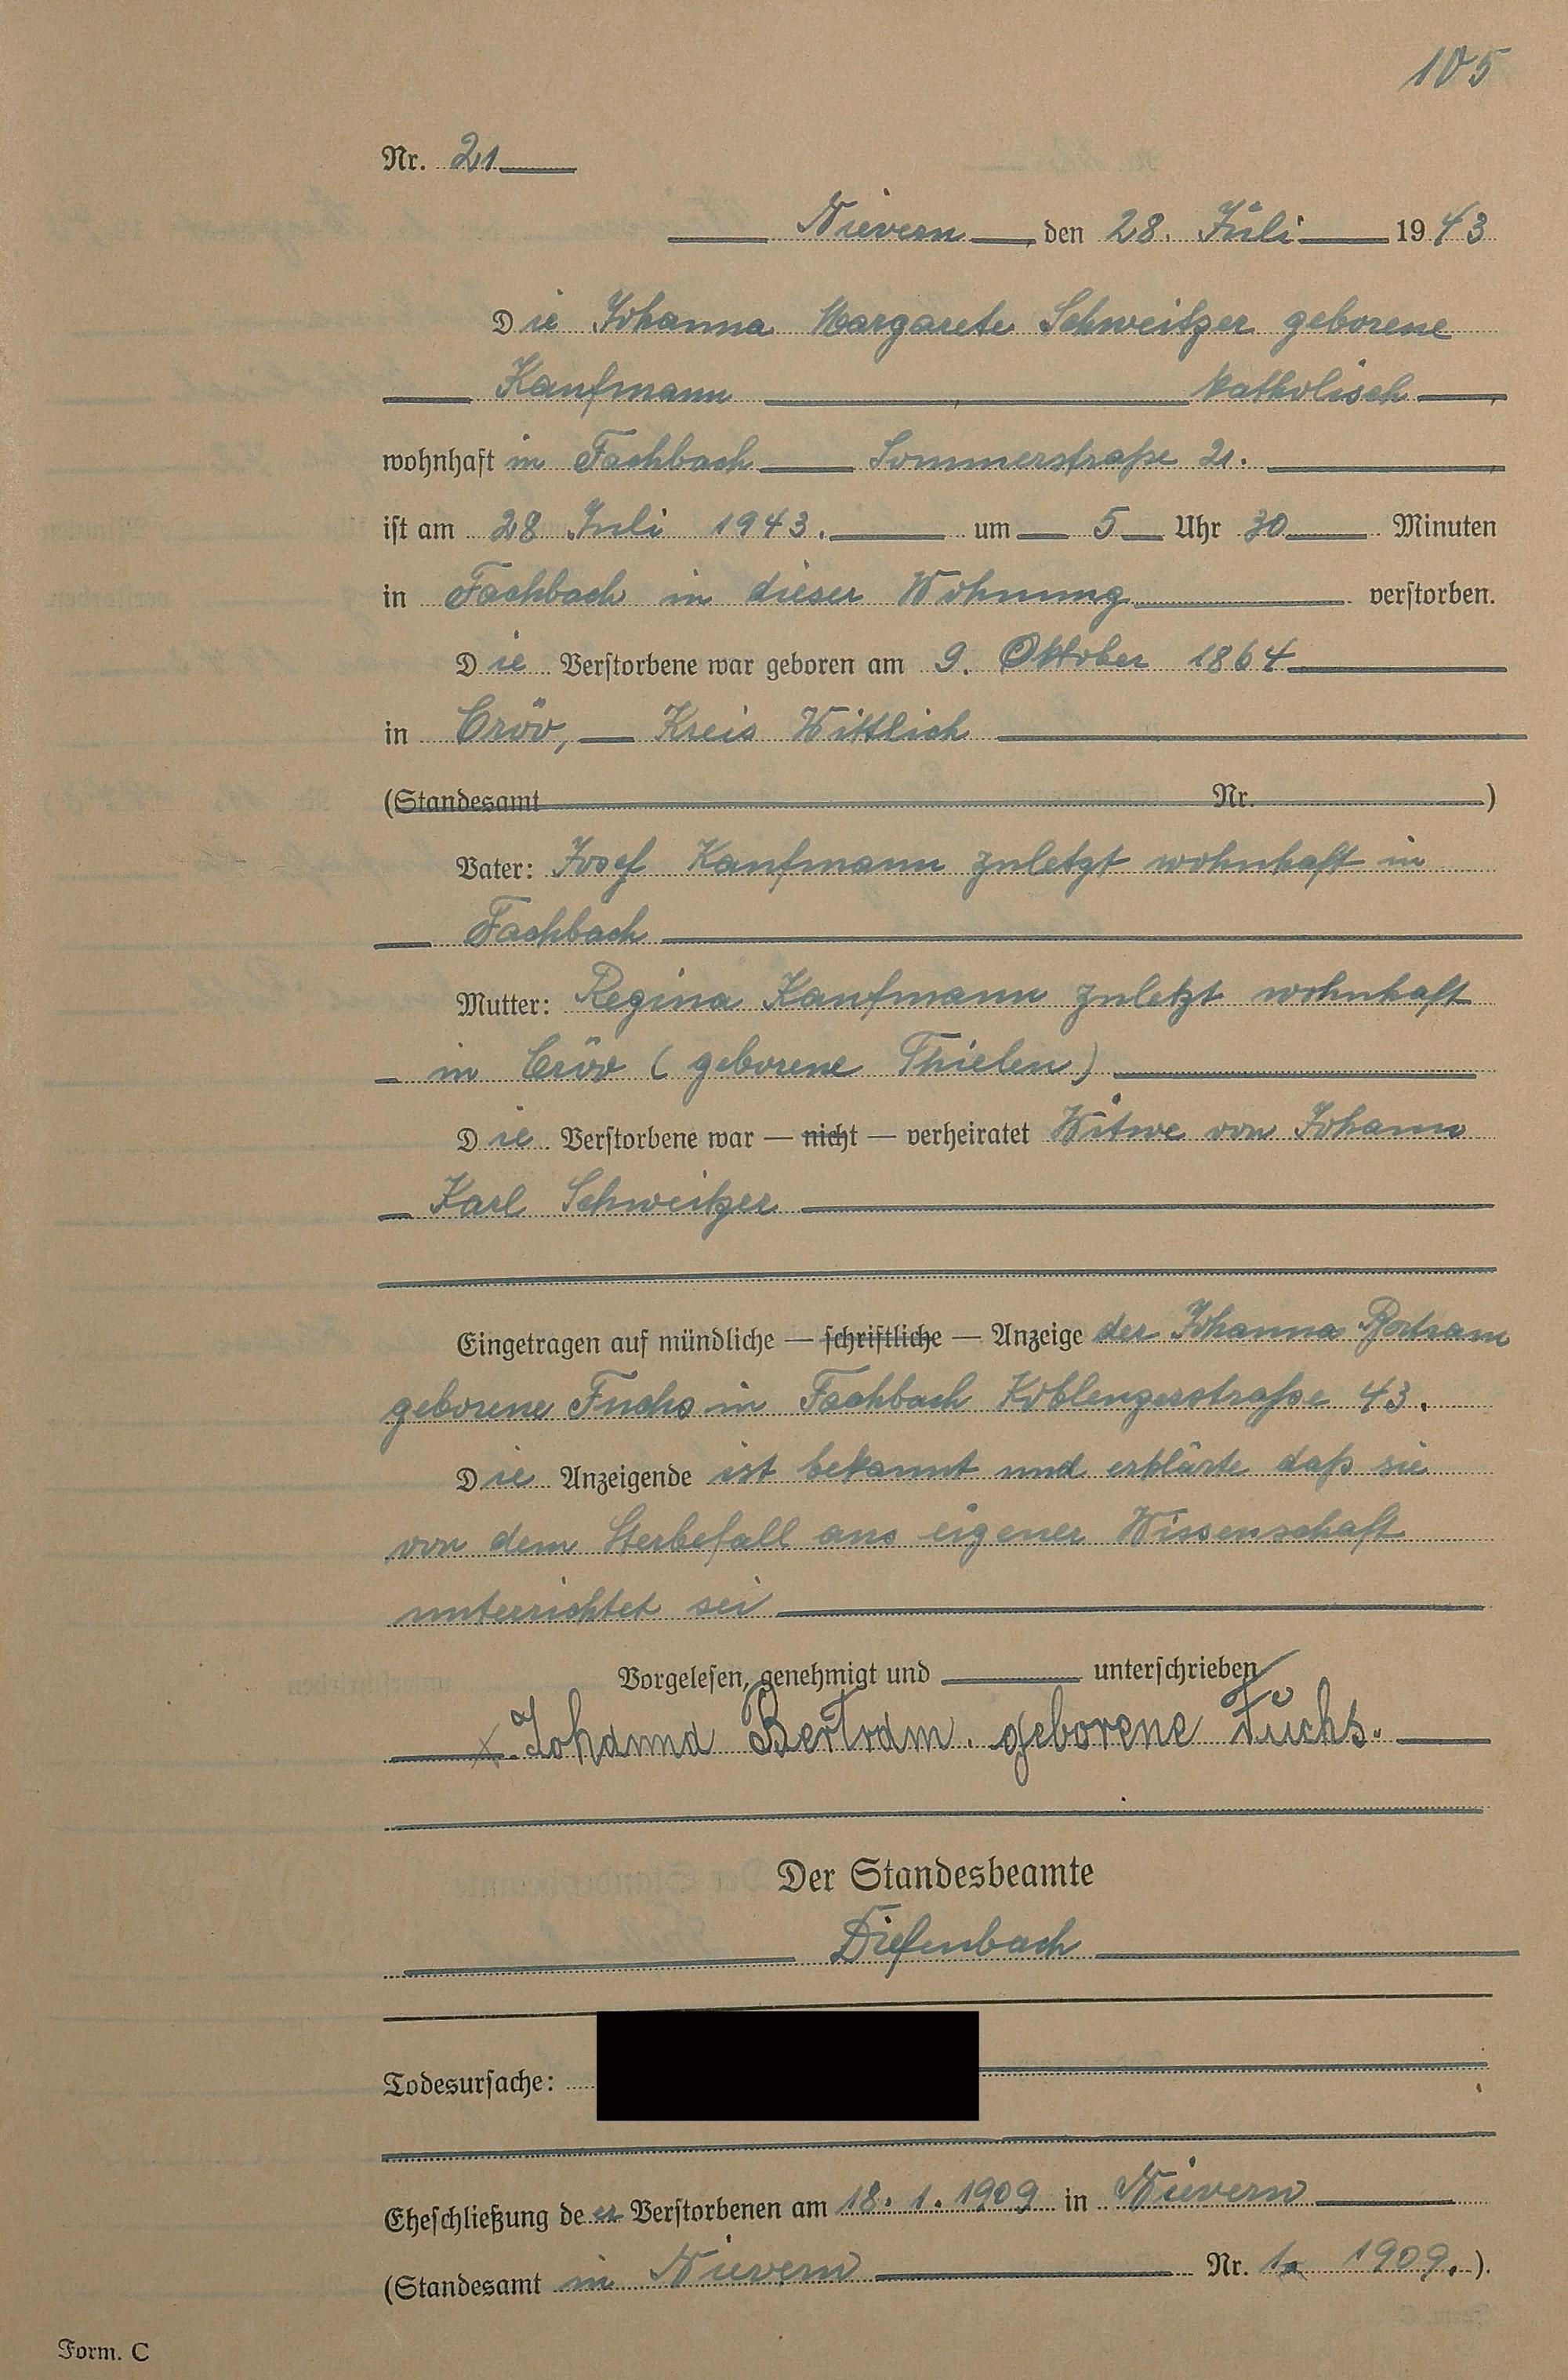 105
Nr. 21
Nievern, den 28. Juli 1943
Die Johanna Margarete Schweitzer geborene
Kaufmann katholisch,
wohnhaft in Fachbach Sommerstraße 21.
ist am 28 Juli 1943. um 5 Uhr 30 Minuten
in Fachbach in dieser Wohnung verstorben.
Die Verstorbene war geboren am 9. Oktober 1864
in Cröv, Kreis Wittlich
(Standesamt Nr. )
Vater: Josef Kaufmann zuletzt wohnhaft in
Fachbach
Mutter: Regina Kaufmann zuletzt wohnhaft
in Cröv (geborene Thielen)
Die Verstorbene war — nicht — verheiratet Witwe von Johann
Karl Schweitzer
Eingetragen auf mündliche — schriftliche — Anzeige der Johanna Bertram
geborene Fuchs in Fachbach Koblenzerstraße 43.
Die Anzeigende ist bekannt und erklärte daß sie
von dem Sterbefall aus eigener Wissenschaft
unterrichtet sei
Vorgelesen, genehmigt und unterschrieben
Johanna Bertram. geborene Fuchs.
Der Standesbeamte
Diefenbach
Todesursache:
Eheschließung de er Verstorbenen am 18. 1. 1909 in Nievern
(Standesamt in Nievern Nr. 1 1909.).
Form. C